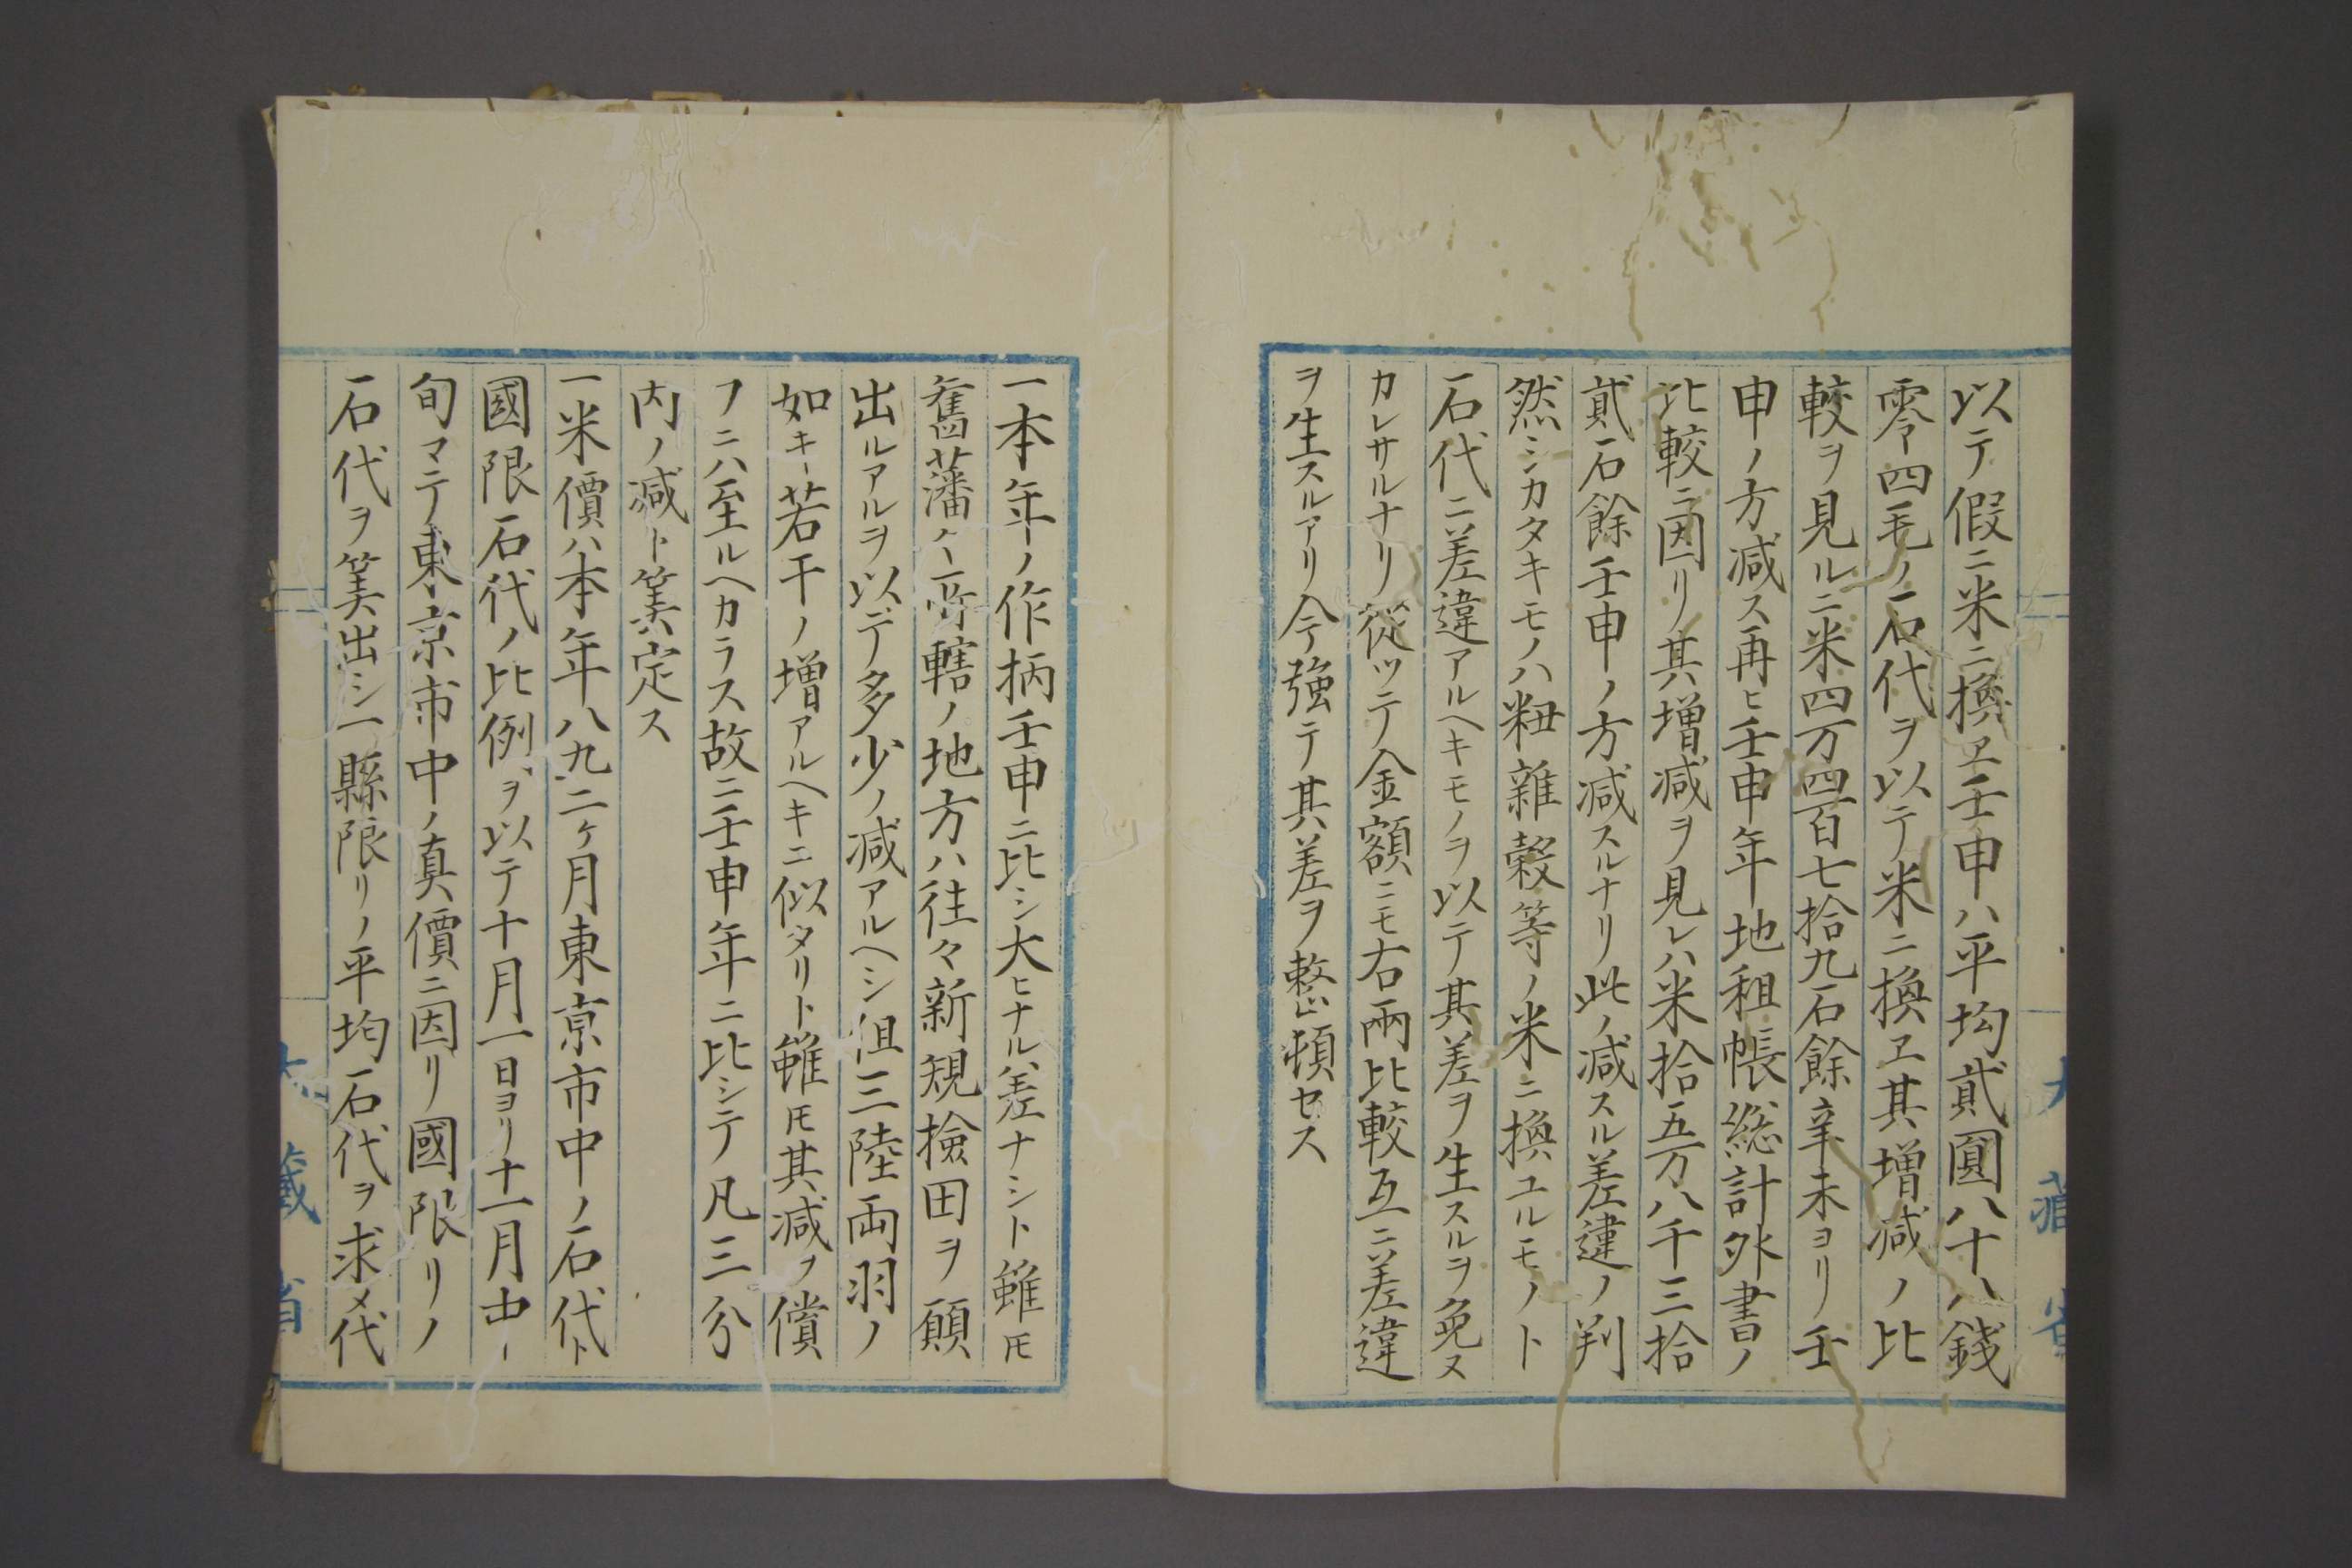 以テ假ニ米ニ換ヱ壬申ハ平均貳圓八十八錢
零四毛ノ石代ヲ以テ米ニ換ヱ其増减ノ比
較ヲ見ルニ米四万四百七拾九石餘辛未ヨリ壬
申ノ方减ス再ヒ壬申年地租帳総計外書ノ
比較ニ因リ其増减ヲ見レハ米拾五万八千三拾
貳石餘壬申ノ方减スルナリ此ノ减スル差違ノ判
然シカタキモノハ粈雜穀等ノ米ニ換ユルモノト
石代ニ差違アルヘキモノヲ以テ其差ヲ生スルヲ免ヌ
カレサルナリ従ツテ金額ニモ右兩比較互ニ差違
ヲ生スルアリ今強テ其差ヲ整頓セス
大藏省
一本年ノ作柄壬申ニ比シ大ヒナル差ナシト雖𪜈
舊藩々所轄ノ地方ハ往々新規撿田ヲ願
出ルアルヲ以テ多少ノ减アルヘシ但三陸両羽ノ
如キ若干ノ増アルヘキニ似タリト雖𪜈其减ヲ償
フニハ至ルヘカラス故ニ壬申年ニ比シテ凡三分
内ノ减ト筭定ス
一米價ハ本年八九二ヶ月東京市中ノ石代ト
國限石代ノ比例ヲ以テ十月一日ヨリ十一月中
旬マテ東京市中ノ真價ニ因リ國限リノ
石代ヲ筭出シ一縣限リノ平均石代ヲ求メ代
大藏省